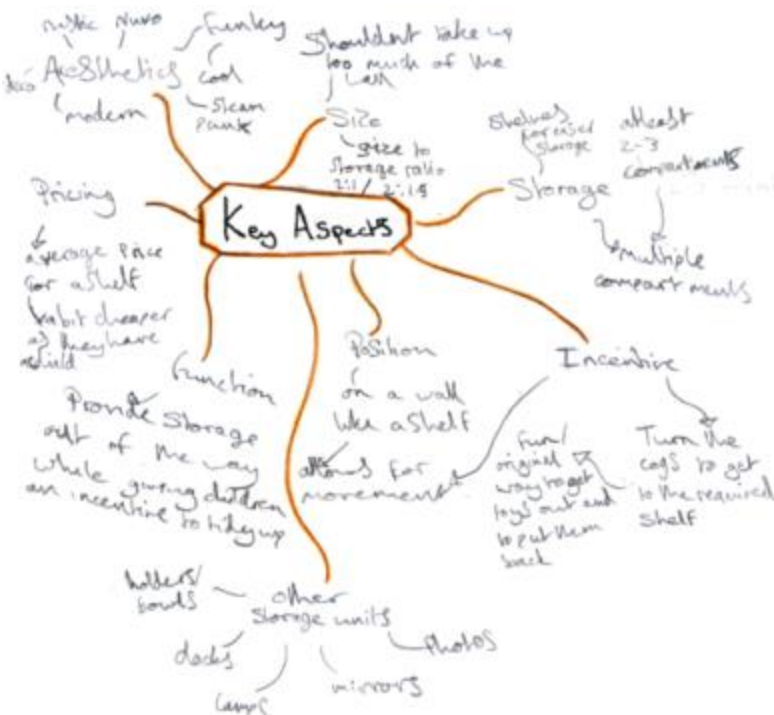 rustic
Funky
Aesthetics
cool
modern
steam
punk
Shouldn't take up
too much of the
Size
size to
storage ratio
2:1 / 2:1.5
Shelves
for easier
storage
Storage
atleast
2-3
compartments
multiple
compartments
Pricing
average price
for a shelf
abit cheaper
as they have
Key Aspects
Function
Provide Storage
out of the way
while giving children
an incentive to tidy up
Position
on a wall
like a shelf
allows for
movement
Incentive
Fun/
original
way to get
toys out and
to put them
back
Turn the
cogs to get
to the required
shelf
other
storage units
holders/
bowls
mirrors
Photos